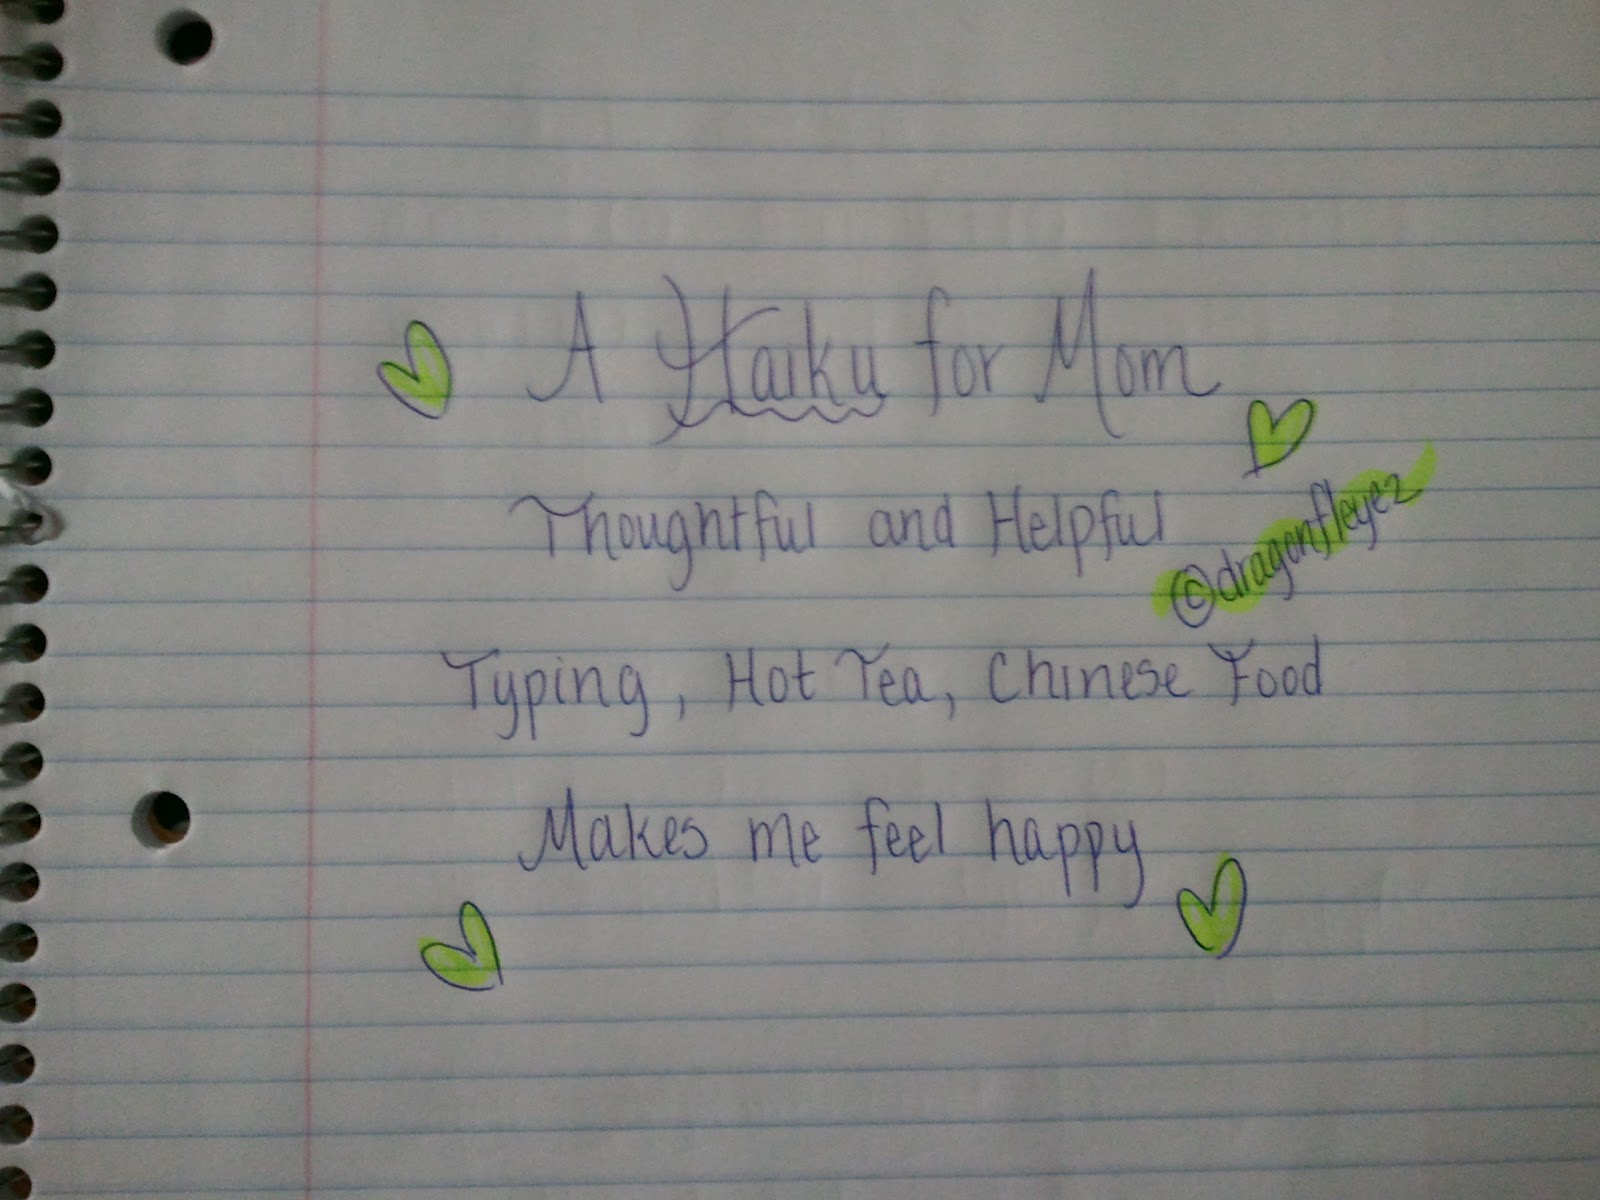 A Haiku for Mom
Thoughtful and Helpful
©dragonfleyez
Typing, Hot Tea, Chinese Food
Makes me feel happy